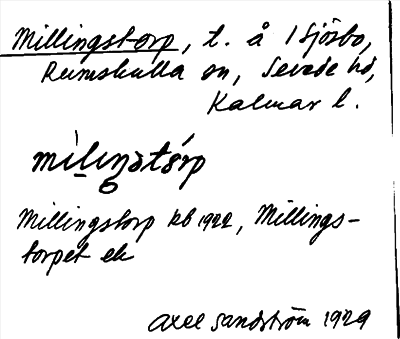 Millingstorp, t. å 1 Sjösbo,
Rumskulla sn, Sevede hd,
Kalmar l.
mìlıŋstórp
Millingstorp kb 1922, Millings-
torpet ek
Axel Sandström 1929